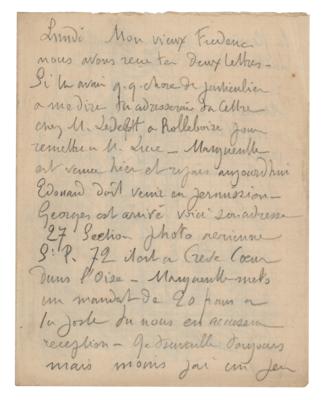 Lundi Mon vieux Frederic
nous avons recu tes deux lettres -
Si tu avais q.q. chose de particulier
a me dire tu adresserais ta lettre
chez M. a Rolleboise pour
remettre a M. Luce - Marguerite
est venue hier et repars aujourdhui
Edouard doit venir en permission -
Georges est arrivé voici son adresse
27 Section photo aerienne
S.P. 72 il est a Creve Coeur
dans l'Oise - Marguerite mets
un mandat de 20 francs a
la poste tu nous en accusera
reception - Je travaille toujours
mais moins jai un peu